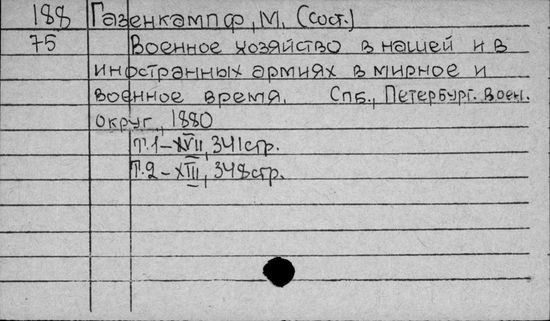 188 Газенкампф, М. (сост.)
75 Военное хозяйство в нашей и в
иностранных армиях в мирное и
военное время. Спб., Петербург. воен.
округ, 1880
Т.1-XVII, 341 стр.
Т.2-XIII, 348 стр.